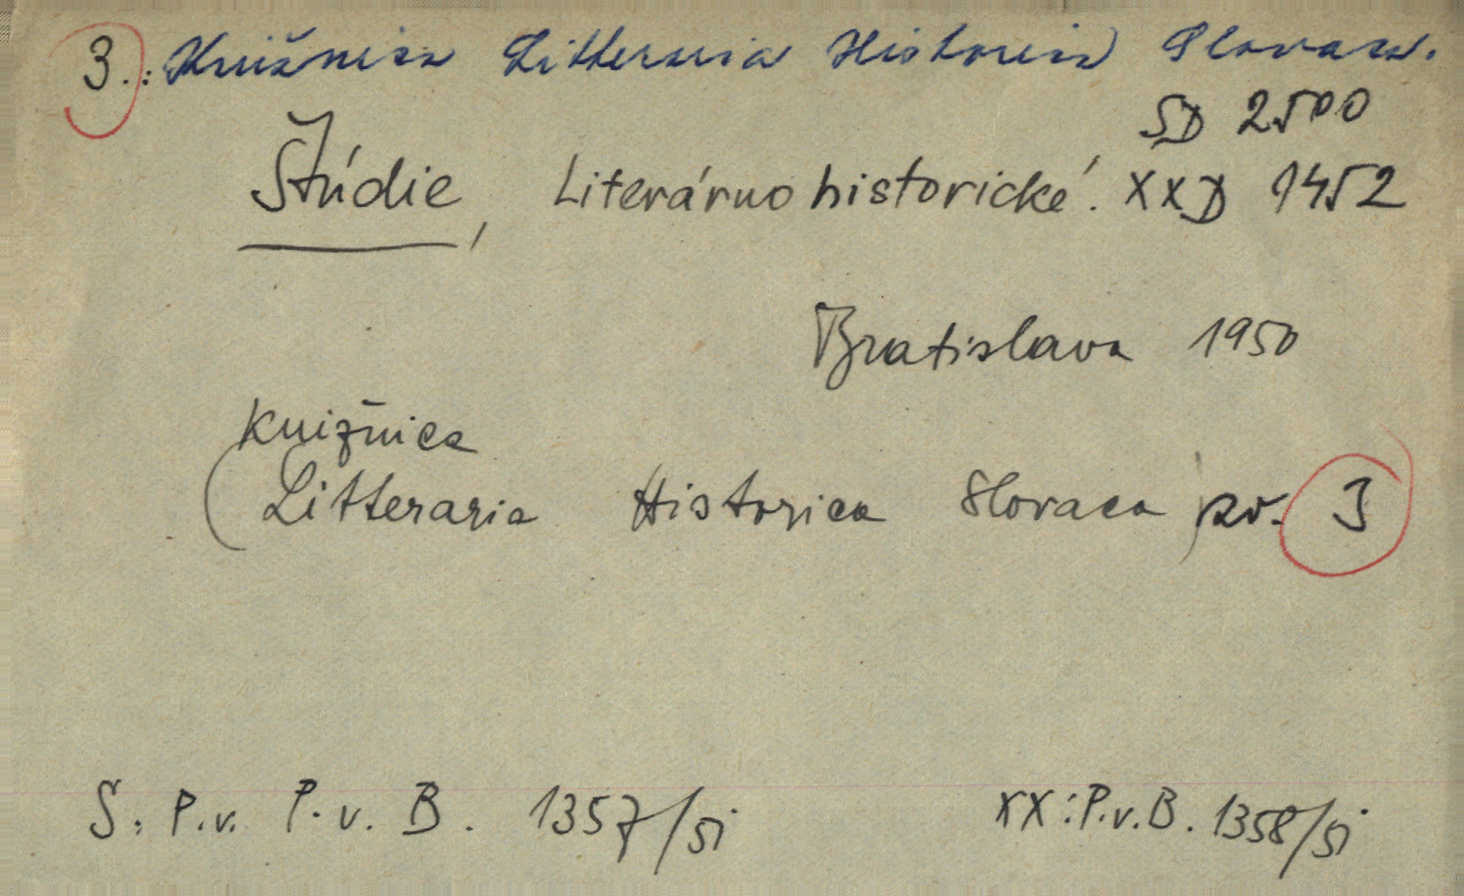 3.: Knižnica Litteraria Historica Slovaca.
SD 2500
Štúdie, Literárno historické. XXD 1452
Bratislava 1950
Knižnica
(Litteraria Historica Slovaca) zv. 3
S: P.v. P.v. B. 1357/si
XX: P.v. B. 1358/si